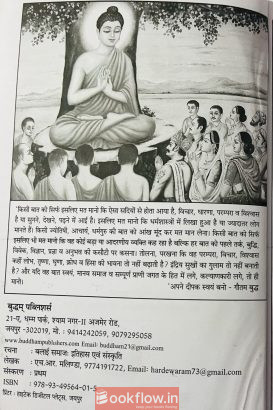 'किसी बात को सिर्फ इसलिए मत मानो कि ऐसा सदियों से होता आया है, विचार, धारणा, परम्परा व विश्वास
है या सुनने, देखने, पढ़ने में आई है। इसलिए मत मानो कि धर्मशास्त्रों में लिखा हुआ है या ज्यादातर लोग
मानते है। किसी ज्योतिषी, आचार्य, धर्मगुरु की बात को आंख मूंद कर मत मान लेना। किसी बात को सिर्फ
इसलिए भी मत मानो कि वह कोई बड़ा या आदरणीय व्यक्ति कह रहा है बल्कि हर बात को पहले तर्क, बुद्धि,
विवेक, विज्ञान, प्रज्ञा व अनुभव की कसौटी पर कसना। तोलना, परखना कि वह परम्परा, विचार, विश्वास
कहीं लोभ, तृष्णा, घृणा, क्रोध व हिंसा की भावना तो नहीं बढ़ाती है? इंद्रिय सुखों का गुलाम तो नहीं बनाती
है? और यदि वह बात स्वयं, मानव समाज व सम्पूर्ण प्राणी जगत के हित में लगे, कल्याणकारी लगे, तो ही
मानो।' 'अपने दीपक स्वयं बनो' - गौतम बुद्ध
बुद्धम् पब्लिशर्स
21-ए, धम्म पार्क, श्याम नगर-II अजमेर रोड,
जयपुर -302019, मो. : 9414242059, 9079295058
www.buddhampublishers.com Email : buddham23@gmail.com
रचना : बलाई समाज: इतिहास एवं संस्कृति
लेखक : एच.आर. मलिण्डा, 9774191722, Email: hardewaram73@gmail.com
संस्करण : प्रथम
ISBN : 978-93-49564-01-5
प्रिंटर : हाईटेक डिजीटल प्लेट्स, जयपुर
Bookflow.in